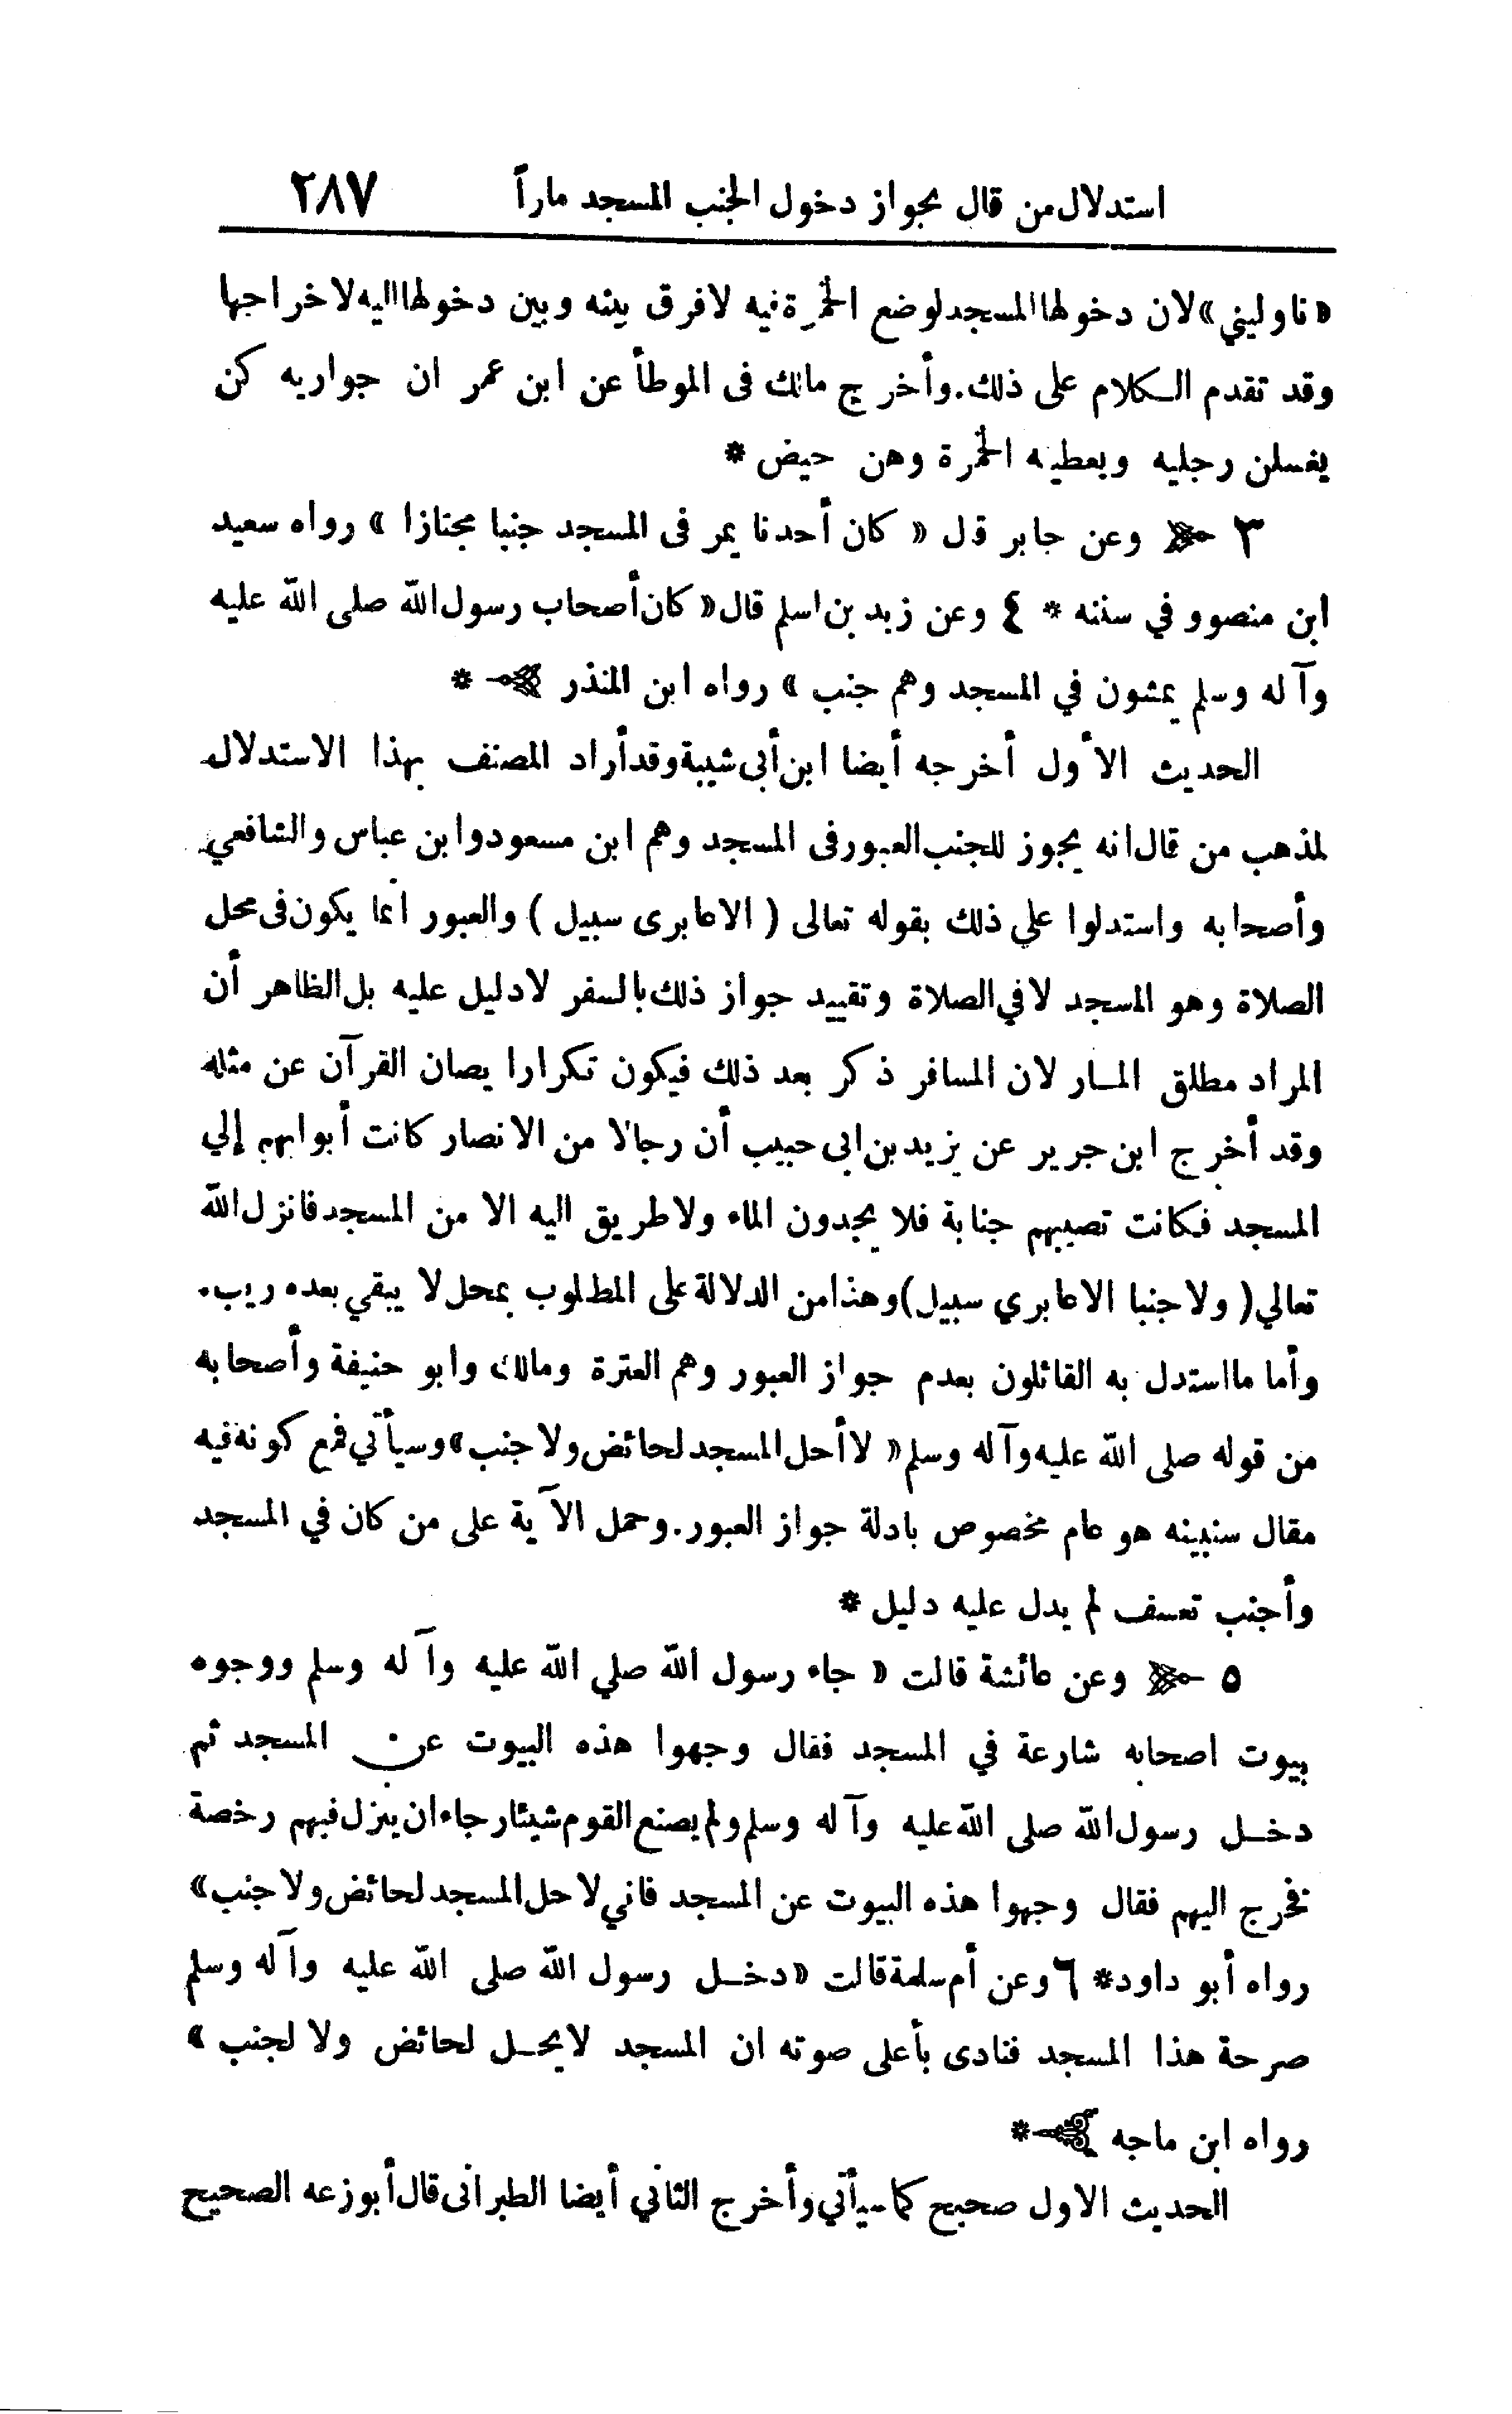 استدلال من قال بجواز دخول الجنب المسجد ماراً ٢٨٧
«ناوليني» لان دخولها المسجد لوضع الخمرة فيه لا فرق بينه وبين دخولها اليه لاخراجها
وقد تقدم الكلام على ذلك. وأخرج مالك فى الموطأ عن ابن عمر ان جواريه كن
يغسلن رجليه ويعطينه الخمرة وهن حيض *
٣ وعن جابر قال « كان أحدنا يمر فى المسجد جنبا مجتازا » رواه سعيد
ابن منصوو في سننه * ٤ وعن زيد بن اسلم قال « كان أصحاب رسول الله صلى الله عليه
وآله وسلم يمشون في المسجد وهم جنب » رواه ابن المنذر *
الحديث الأول أخرجه أيضا ابن أبى شيبة وقد أراد المصنف بهذا الاستدلال
لمذهب من قال انه يجوز للجنب العبور فى المسجد وهم ابن مسعود وابن عباس والشافعي
وأصحابه واستدلوا علي ذلك بقوله تعالى ( الا عابرى سبيل ) والعبور انما يكون فى محل
الصلاة وهو المسجد لا في الصلاة وتقييد جواز ذلك بالسفر لا دليل عليه بل الظاهر أن
المراد مطلق المار لان المسافر ذكر بعد ذلك فيكون تكرارا يصان القرآن عن مثله
وقد أخرج ابن جرير عن يزيد بن ابى حبيب أن رجالا من الانصار كانت أبوابهم إلي
المسجد فكانت تصيبهم جنابة فلا يجدون الماء ولا طريق اليه الا من المسجد فانزل الله
تعالي ( ولا جنبا الا عابري سبيل ) وهذا من الدلالة على المطلوب بمحل لا يبقي بعده ريب.
وأما ما استدل به القائلون بعدم جواز العبور وهم العترة ومالك وابو حنيفة وأصحابه
من قوله صلى الله عليه وآله وسلم « لا أحل المسجد لحائض ولا جنب » وسيأتي فمع كونه فيه
مقال سنبينه هو عام مخصوص بادلة جواز العبور. وحمل الآية على من كان في المسجد
وأجنب تعسف لم يدل عليه دليل *
٥ وعن عائشة قالت « جاء رسول الله صلي الله عليه وآله وسلم ووجوه
بيوت اصحابه شارعة في المسجد فقال وجهوا هذه البيوت عن المسجد ثم
دخل رسول الله صلى الله عليه وآله وسلم ولم يصنع القوم شيئا رجاء ان ينزل فيهم رخصة
فخرج اليهم فقال وجهوا هذه البيوت عن المسجد فاني لا حل المسجد لحائض ولا جنب »
رواه أبو داود * ٦ وعن أم سلمة قالت « دخل رسول الله صلى الله عليه وآله وسلم
صرحة هذا المسجد فنادى بأعلى صوته ان المسجد لا يحل لحائض ولا لجنب »
رواه ابن ماجه *
الحديث الاول صحيح كما سيأتي وأخرج الثاني أيضا الطبرانى قال أبو زعه الصحيح